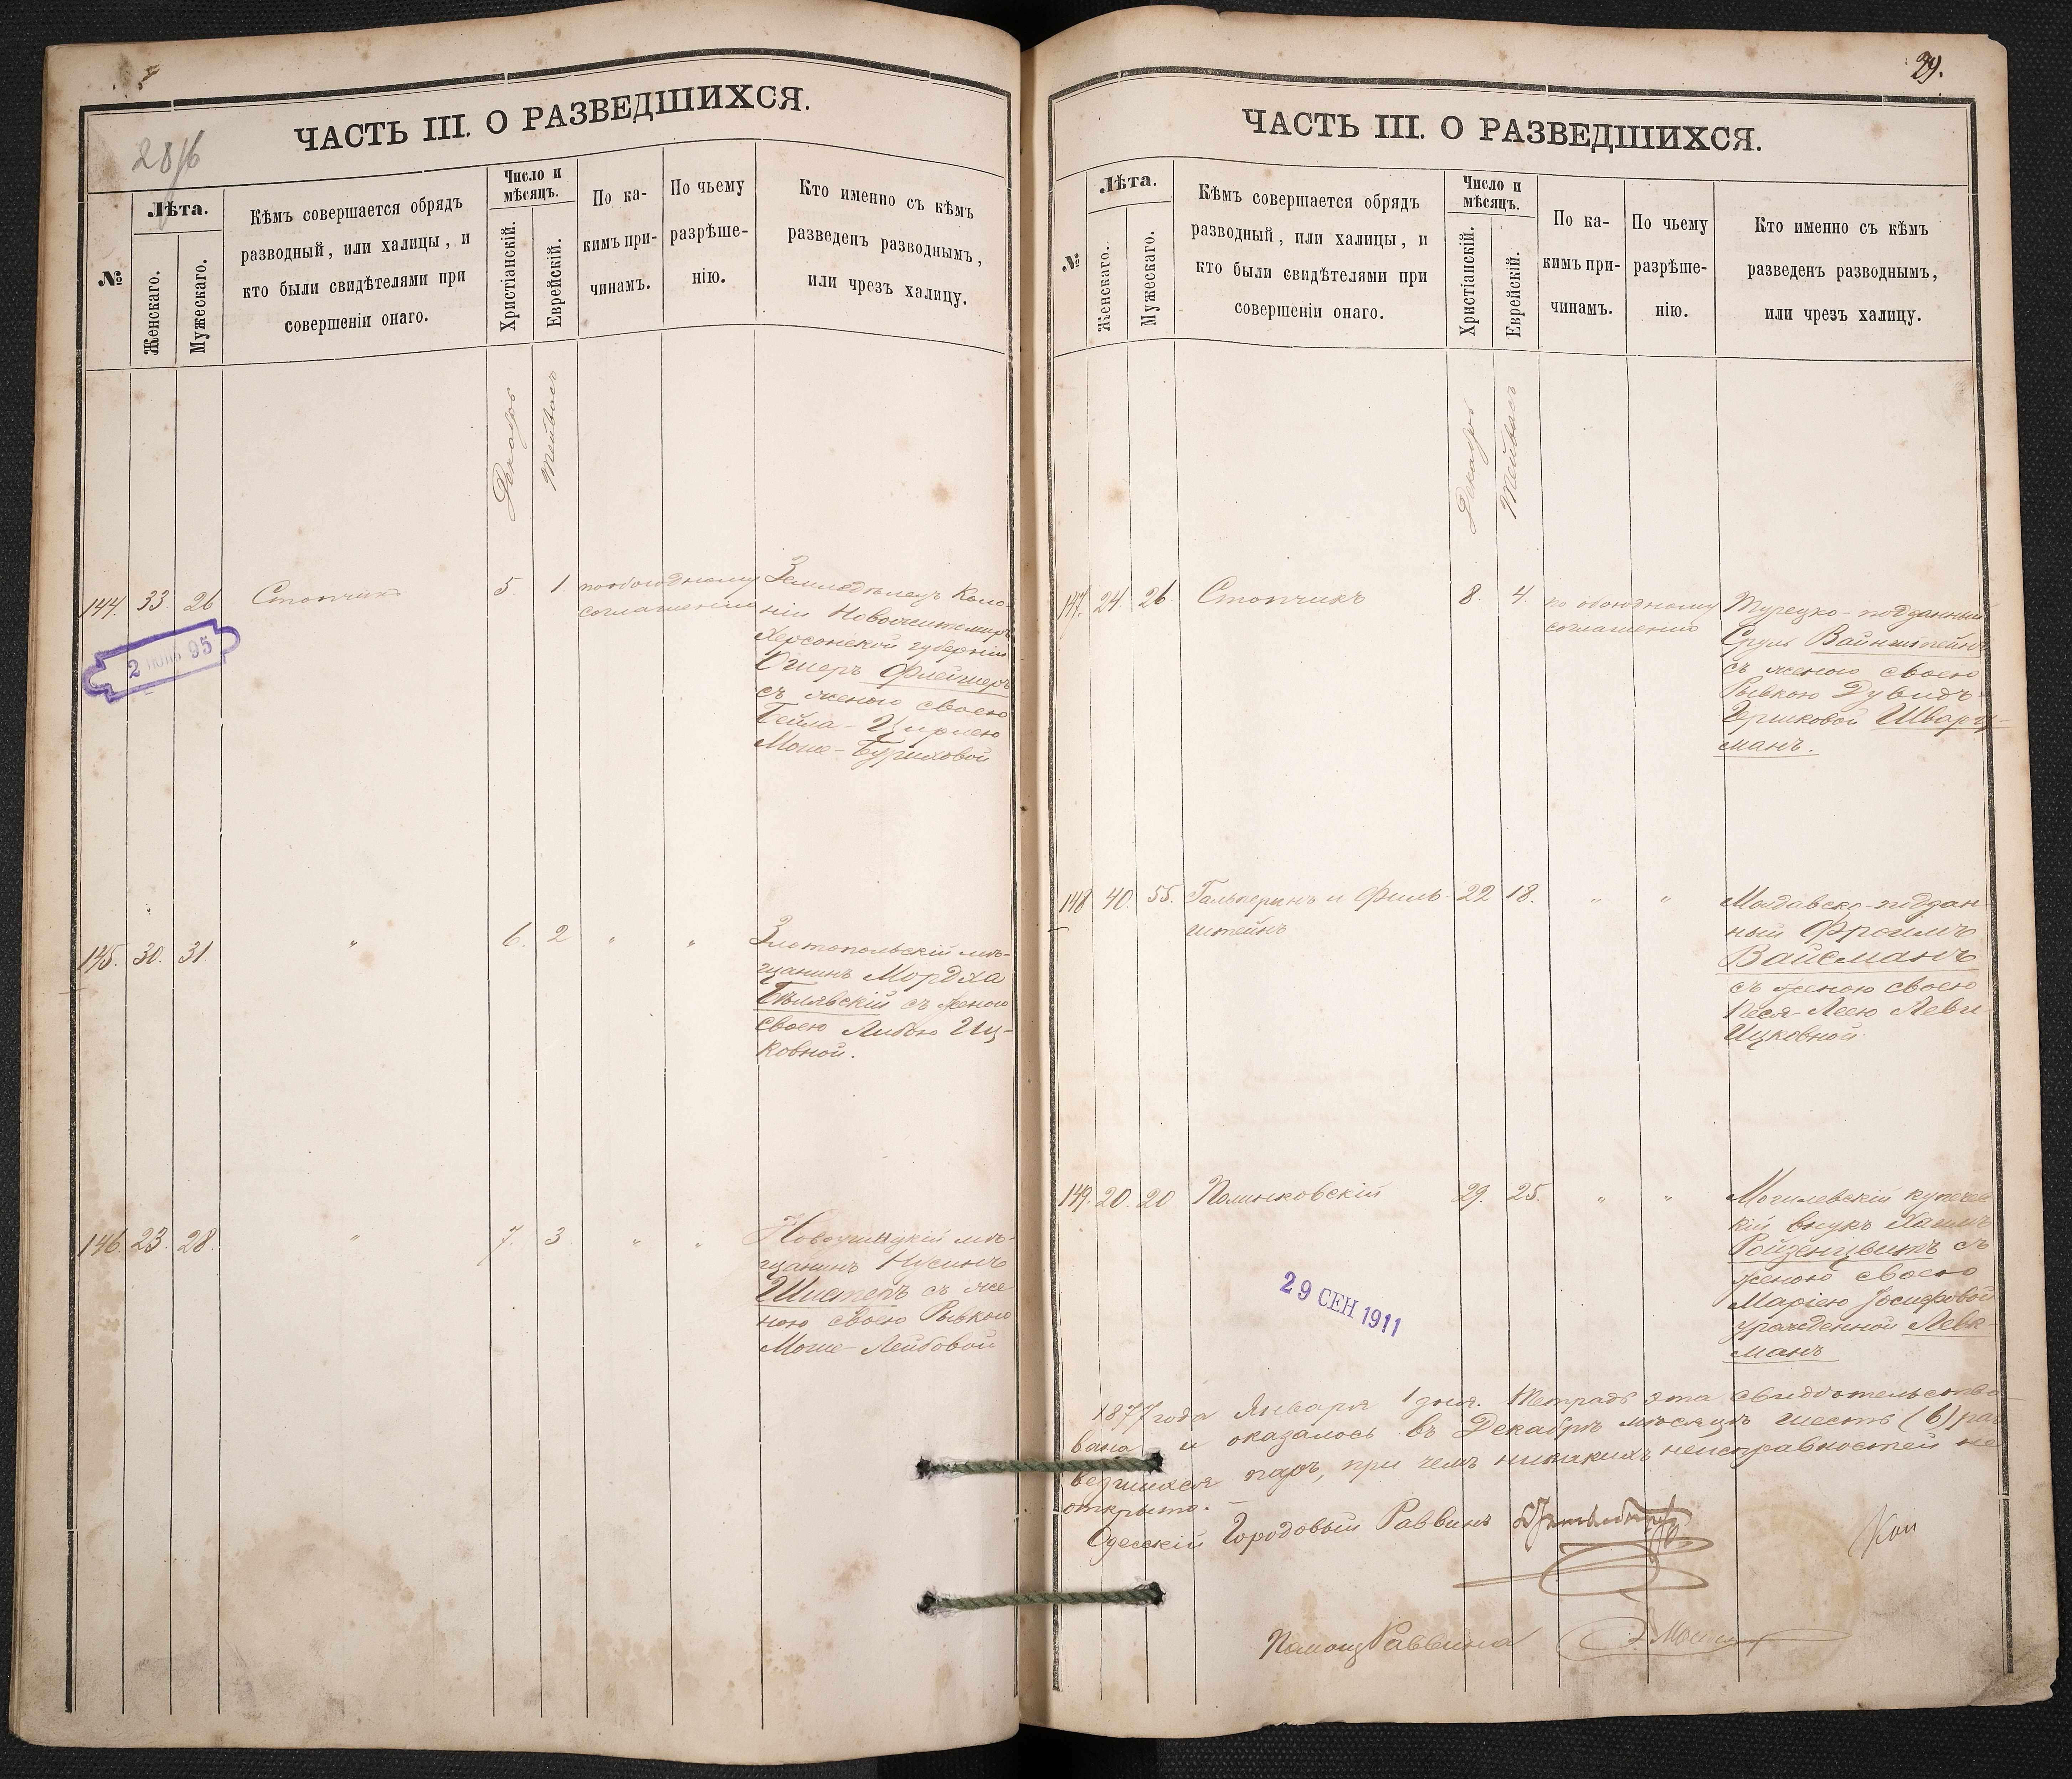 ЧАСТЬ III. О РАЗВЕДШИХСЯ.
28/6
№
Лѣта.
Женскаго.
Мужескаго.
Кѣмъ совершается обрядъ
разводный, или халицы, и
кто были свидѣтелями при
совершеніи онаго.
Число и
мѣсяцъ.
Христіанскій.
Еврейскій.
По ка-
кимъ при-
чинамъ.
По чьему
разрѣше-
нію.
Кто именно съ кѣмъ
разведенъ разводнымъ,
или чрезъ халицу.
Декабрь
Тейвесъ
144. 33 26 Стопчикъ 5. 1 по обоюдному
соглашенію
Земледѣлецъ Коло-
ніи Новожитомиръ
Херсонской губерніи
Ошеръ Флейшеръ
съ женою своею
Бейла-Цирлею
Моше-Буриховой
2 95
145. 30. 31 " 6. 2 " "
Златопольскій мѣ-
щанинъ Мордха
Бѣлявскій съ женою
своею Либою Иц-
ковной.
146. 23. 28. " 7. 3 " "
Новоушицкій мѣ-
щанинъ Нусинъ
съ же
ною своею Рывкою
Моше-Лейбовой
29.
ЧАСТЬ III. О РАЗВЕДШИХСЯ.
№
Лѣта.
Женскаго.
Мужескаго.
Кѣмъ совершается обрядъ
разводный, или халицы, и
кто были свидѣтелями при
совершеніи онаго.
Число и
мѣсяцъ.
Христіанскій.
Еврейскій.
По ка-
кимъ при-
чинамъ.
По чьему
разрѣше-
нію.
Кто именно съ кѣмъ
разведенъ разводнымъ,
или чрезъ халицу.
Декабрь
Тейвесъ
147. 24. 26. Стопчикъ 8. 4. по обоюдному
соглашенію
Турецко-подданный
Сруль Вайнштейнъ
съ женою своею
Рывкою Дувидъ-
Гершковой Шварц-
манъ.
148 40. 55. Гальперинъ и Филь-
штейнъ
22 18. " "
Молдавско-поддан
ный Фроимъ
Вайсманъ
съ женою своею
Песя-Леею Леви-
Ицковной
149. 20. 20 Полинковскій 29. 25. " "
Могилевскій купечес
кій внукъ Хаимъ
Ройзенцвитъ съ
женою своею
Маріею Іосифовой
урожденной Левк-
манъ
29 СЕН 1911
1877 года Января 1 дня. Тетрадь эта свидѣтельство-
вана и оказалось въ Декабрѣ мѣсяцѣ шесть (6) раз
ведшихся паръ, при чемъ никакихъ неисправностей не
открыто.
Одесскій Городовый Раввинъ
Помощ Раввина